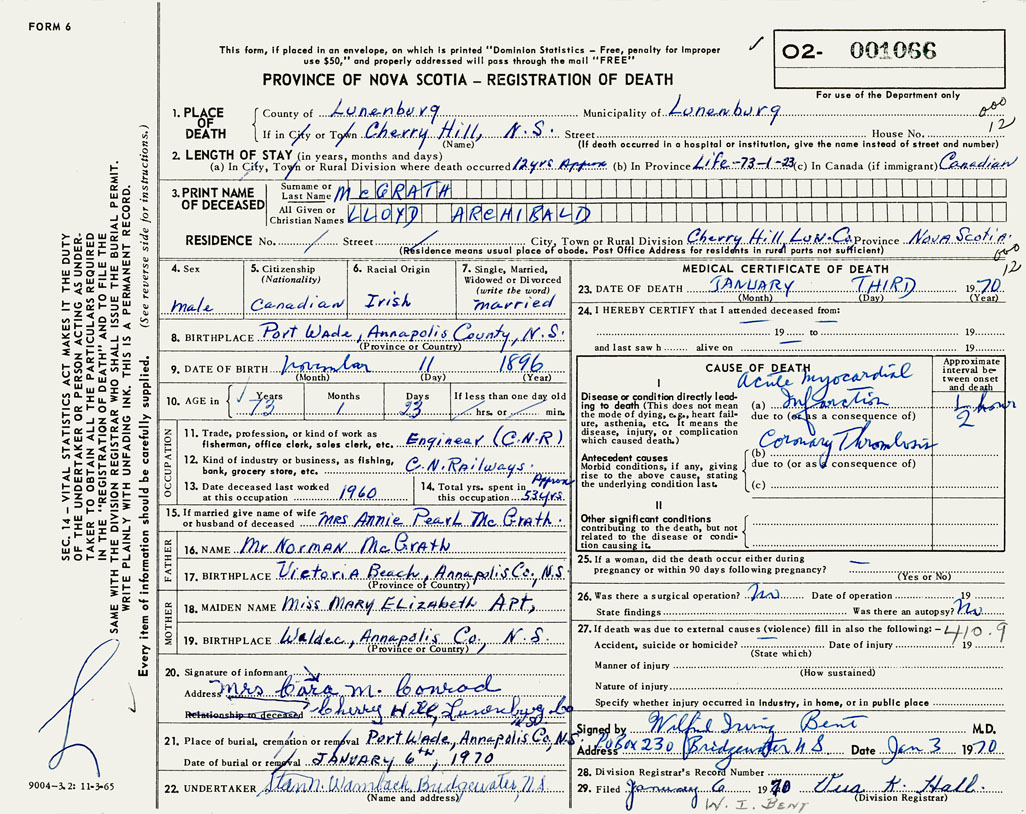 FORM 6
This form, if placed in an envelope, on which is printed "Dominion Statistics – Free, penalty for improper
use $50," and properly addressed will pass through the mail "FREE"
O2- 001066
For use of the Department only
PROVINCE OF NOVA SCOTIA – REGISTRATION OF DEATH
1. PLACE OF DEATH
County of Lunenburg Municipality of Lunenburg
If in City or Town Cherry Hill, N.S. Street House No.
(Name) (If death occurred in a hospital or institution, give the name instead of street and number)
000
12
2. LENGTH OF STAY (in years, months and days)
(a) In City, Town or Rural Division where death occurred 12 yrs Approx (b) In Province Life-73-1-23 (c) In Canada (if immigrant) Canadian
3. PRINT NAME OF DECEASED
Surname or Last Name McGRATH
All Given or Christian Names LLOYD ARCHIBALD
RESIDENCE No. / Street / City, Town or Rural Division Cherry Hill, Lun-Co Province Nova Scotia.
(Residence means usual place of abode. Post Office Address for residents in rural parts not sufficient)
000
12
4. Sex
male
5. Citizenship
(Nationality)
Canadian
6. Racial Origin
Irish
7. Single, Married,
Widowed or Divorced
(write the word)
married
8. BIRTHPLACE Port Wade, Annapolis County, N.S.
(Province or Country)
9. DATE OF BIRTH November 11 1896
(Month) (Day) (Year)
10. AGE in
Years Months Days If less than one day old
73 1 23 hrs. or min.
OCCUPATION
11. Trade, profession, or kind of work as
fisherman, office clerk, sales clerk, etc. Engineer (C.N.R)
12. Kind of industry or business, as fishing,
bank, grocery store, etc. C.N.Railways.
13. Date deceased last worked
at this occupation 1960
14. Total yrs. spent in
this occupation Approx 53 yrs.
15. If married give name of wife
or husband of deceased Mrs Annie Pearl McGrath.
FATHER
16. NAME Mr Norman McGrath
17. BIRTHPLACE Victoria Beach, Annapolis Co, N.S.
(Province or Country)
MOTHER
18. MAIDEN NAME Miss Mary Elizabeth Apt,
19. BIRTHPLACE Waldec, Annapolis Co, N.S.
(Province or Country)
20. Signature of informant
Mrs Cora M. Conrad
Address
Cherry Hill, Lunenburg Co
N.S.
Relationship to deceased
21. Place of burial, cremation or removal Port Wade, Annapolis Co, N.S.
Date of burial or removal January 6th, 1970
22. UNDERTAKER Bridgewater, N.S.
(Name and address)
MEDICAL CERTIFICATE OF DEATH
23. DATE OF DEATH JANUARY THIRD 1970
(Month) (Day) (Year)
24. I HEREBY CERTIFY that I attended deceased from:
19 to 19
and last saw h alive on 19
CAUSE OF DEATH
Approximate
interval be-
tween onset
and death
I
Disease or condition directly lead-
ing to death (This does not mean
the mode of dying, e.g., heart fail-
ure, asthenia, etc. It means the
disease, injury, or complication
which caused death.)
Acute Myocardial
(a) Infarction 1/2 hour
due to (or as a consequence of)
Coronary Thrombosis
(b)
due to (or as a consequence of)
(c)
Antecedent causes
Morbid conditions, if any, giving
rise to the above cause, stating
the underlying condition last.
II
Other significant conditions
contributing to the death, but not
related to the disease or condi-
tion causing it.
25. If a woman, did the death occur either during
pregnancy or within 90 days following pregnancy? —
(Yes or No)
26. Was there a surgical operation? No Date of operation 19
State findings Was there an autopsy? No
27. If death was due to external causes (violence) fill in also the following: – 410.9
Accident, suicide or homicide? Date of injury 19
(State which)
Manner of injury
(How sustained)
Nature of injury
Specify whether injury occurred in Industry, in home, or in public place
Signed by Wilfred Irving Bent M.D.
Address PO Box 230 Bridgewater N S Date Jan 3 1970
28. Division Registrar's Record Number
29. Filed January 6 1970 K. Hall.
(Division Registrar)
W. I. BENT
SEC. 14 – VITAL STATISTICS ACT MAKES IT THE DUTY
OF THE UNDERTAKER OR PERSON ACTING AS UNDER-
TAKER TO OBTAIN ALL THE PARTICULARS REQUIRED
IN THE "REGISTRATION OF DEATH" AND TO FILE THE
SAME WITH THE DIVISION REGISTRAR WHO SHALL ISSUE THE BURIAL PERMIT.
WRITE PLAINLY WITH UNFADING INK. THIS IS A PERMANENT RECORD.
Every item of information should be carefully supplied. (See reverse side for instructions.)
9004-3.2: 11-3-65